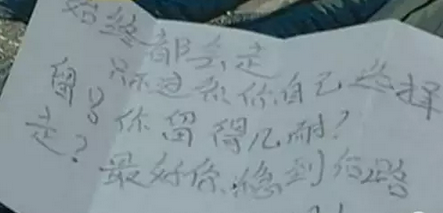 始终都会走
只不过系你自己选择
留? 你留得几耐?
走? 最好你稳到 路